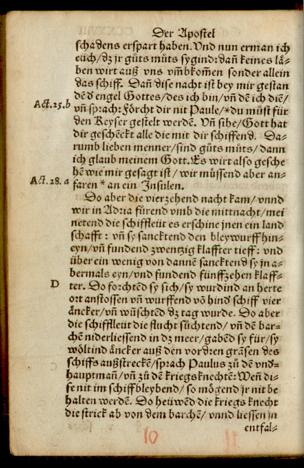 Der Apostel
schadens erspart haben. Vnd nun erman ich
euch/ dz jr gůts můts sygind: dañ keines lå-
ben wirt auß vns vm̃bkom̃en sonder allein
das schiff. Dañ dise nacht ist bey mir gestan
dẽ d engel Gottes/ des ich bin/ vñ dẽ ich diẽ/
vñ sprach: Förcht dir nit Paule/ * du můst für
den Keyser gestelt werdẽ. Vñ sihe/ Gott hat
dir geschẽckt alle die mit dir schiffend. Da-
rumb lieben menner/ sind gůts můts/ dann
ich glaub meinem Gott. Es wirt also gesche
hẽ wie mir gesagt ist/ wir müssend aber an-
faren * an ein Insulen.
Act. 25. b
Act. 28. a
Do aber die vierzehend nacht kam/ vnnd
wir in Adria fůrend vmb die mittnacht/ mei
netend die schiffleüt es erschine jnen ein land
schafft: vñ sy sancktend den bleywurff hin-
eyn/ vñ fundend zwentzig klaffter tieff: vnd
über ein wenig von dannẽ sanctẽtend sy ja a-
bermals eyn/ vnd fundend fünffzehen klaff-
D
ter. Do forchtẽd sy sich/ sy wurdind an herte
ort anstossen vñ wurffend võ hind schiff vier
åncker/ vñ wüschtẽd dz tag wurde. Do aber
die schiffleüt die flucht sůchtend/ vñ dẽ bar-
chẽ niderliessend in dz meer/ gabẽd sy für/ sy
wöltind åncker auß den vordren
schiffs außstreckẽ/ sprach Paulus zů dẽ vnd-
hauptmañ/ vñ zů dẽ kriegsknechtẽ: Weñ di-
se nit im schiff bleybend/ so mögend jr nit be
halten werdẽ. Do heüwẽd die kriegs knecht
die strick ab von dem barchẽ/ vnnd liessen jn
entfal-
10